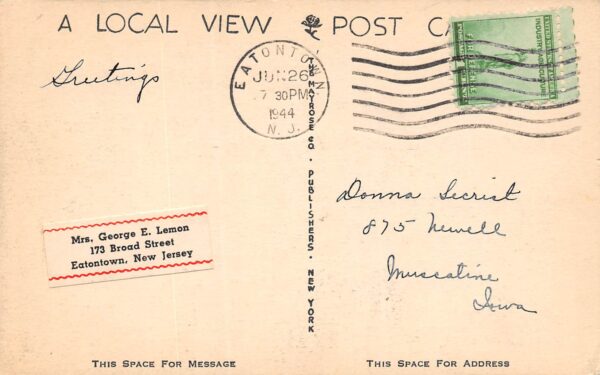 A LOCAL VIEW POST CA
Greetings
EATONTOWN
JUN 26
7 30 PM
1944
N. J.
UNITED STATES OF AMERICA
INDUSTRY AGRICULTURE
FOR DEFENSE
THE MAYROSE CO. · PUBLISHERS · NEW YORK
Mrs. George E. Lemon
173 Broad Street
Eatontown, New Jersey
Donna Secrist
875 Newell
Muscatine
Iowa
THIS SPACE FOR MESSAGE
THIS SPACE FOR ADDRESS